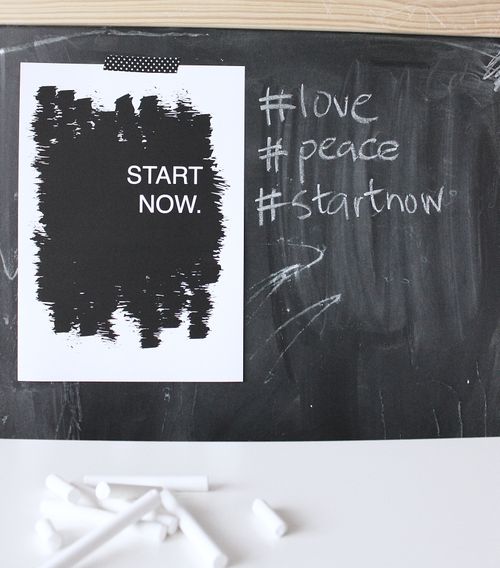 START
NOW.
#love
#peace
#startnow